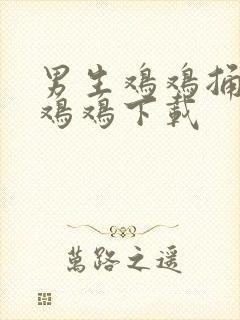 男生鸡鸡捅
鸡鸡下载
萬路之遥